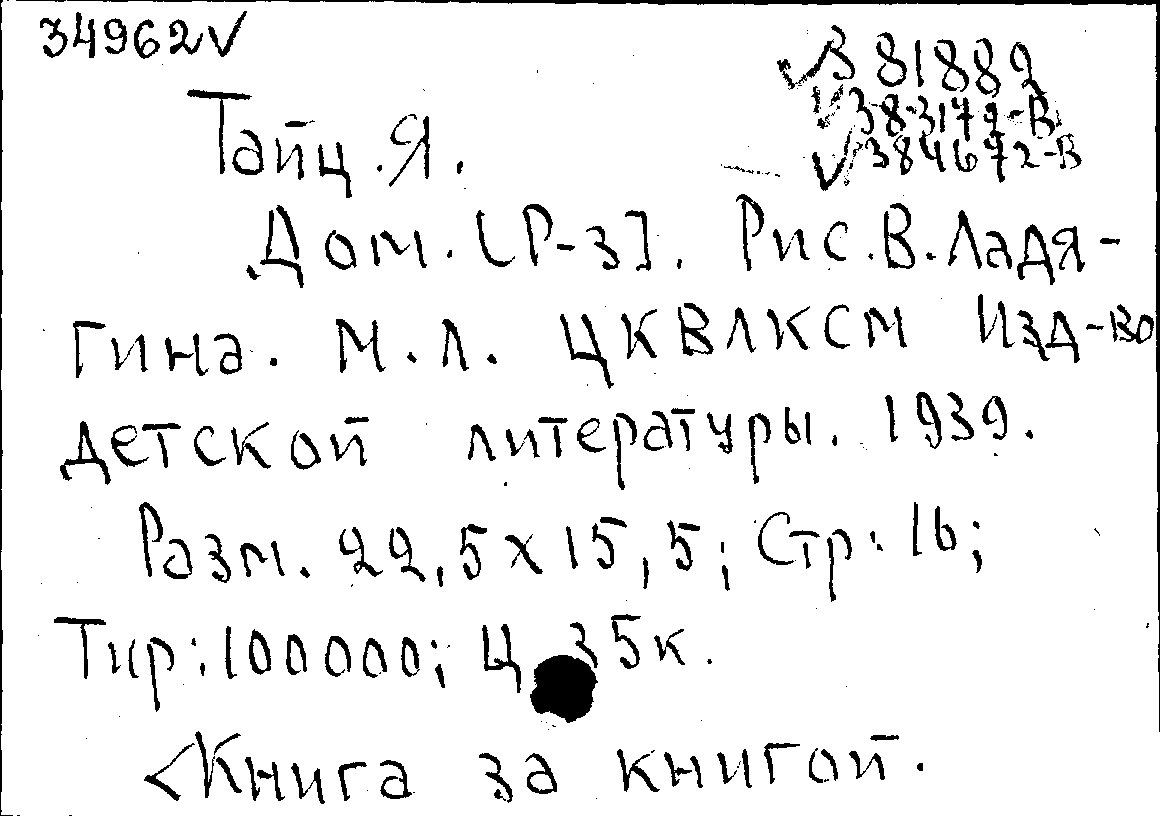 34962V
В 81882
383172-В
384672-В
Тайц. Я.
Дом. [Р-з]. Рис. В. Ладя-
гина. М. Л. ЦКВЛКСМ Изд-во
детской литературы. 1939.
Разм. 22,5х15,5; Стр: 16;
Тир: 100000; Ц 35к.
<Книга за книгой.